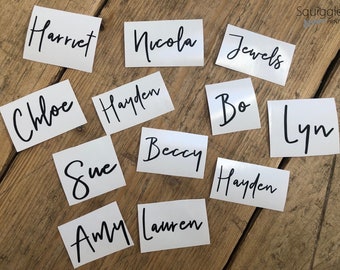 Squiggle
Harriet
Nicola
Jewels
Chloe
Hayden
Bo
Lyn
Sue
Beccy
Hayden
Amy
Lauren